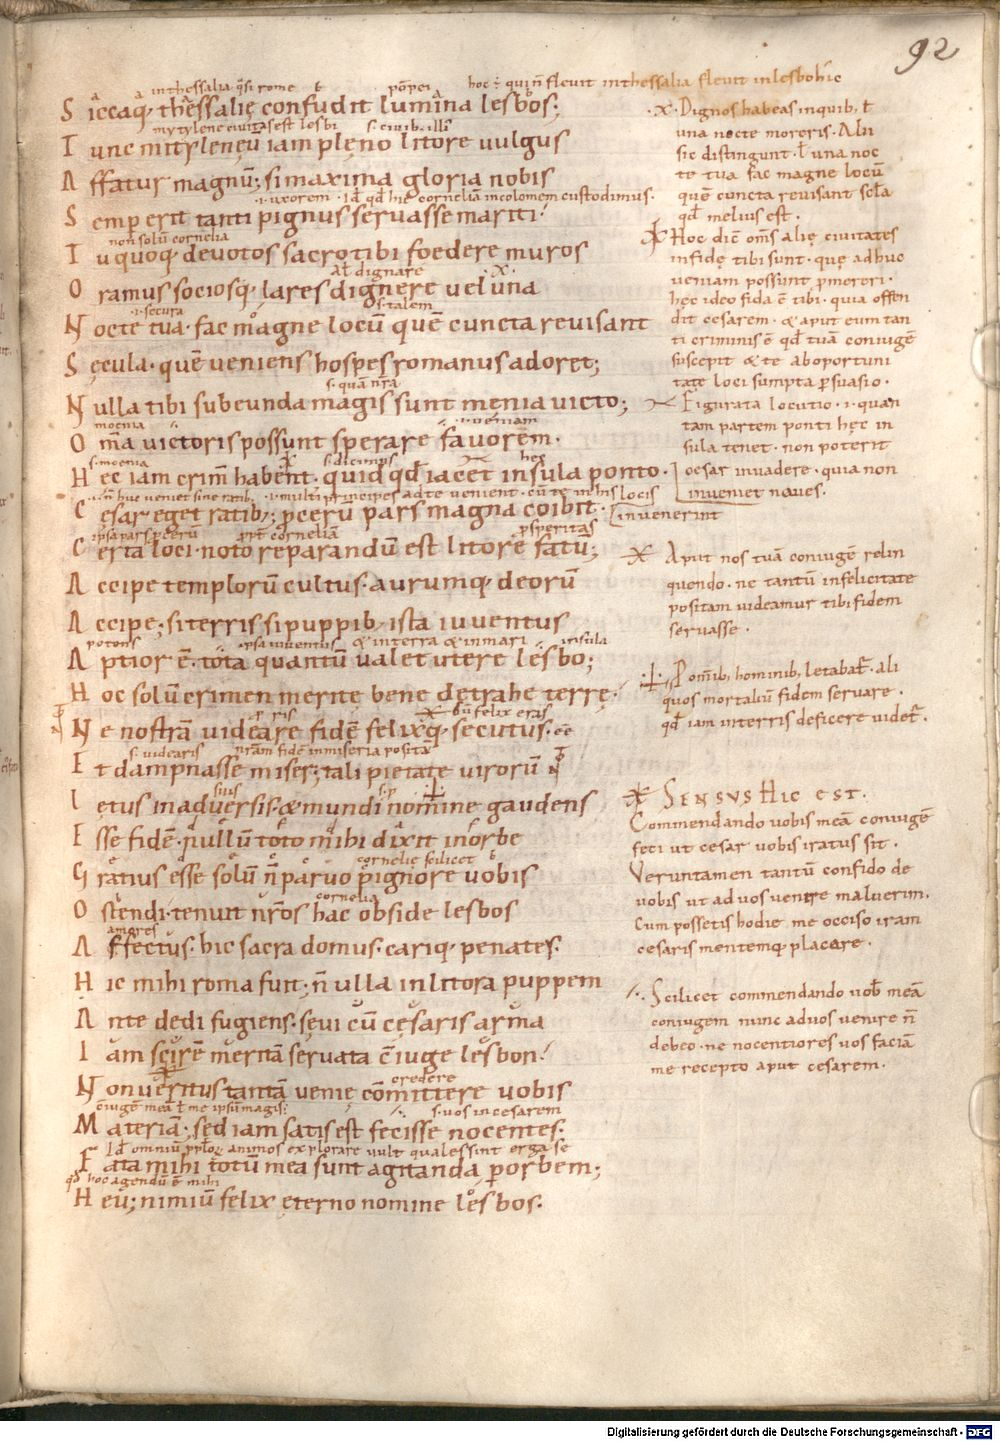 92
in thessalia q̄si rome pōpei hoc ÷ qui ñ fleuit in thessalia fleuit in lesbo hic
S iccaq; thessalię confudit lumina lesbos;
mytylene ciuitas est lesbi s. ciuib; illi
T unc mitylenęū iam pleno litore uulgus
A ffatur magnū; si maxima gloria nobis
.i. uxorem . Id ÷ qd hic corneliā incolomem custodimus.
S emp erit tanti pignus seruasse mariti.
non solū cornelia
T u quoq; deuotos sacro tibi foedere muros
At dignare .x.
O ramus sociosq; lares dignere uel una
.i. secura s. talem
N octe tua. fac magne locū quē cuncta reuisant
S ęcula. quē ueniens hospes romanus adoret;
s. quā nr̄a
N ulla tibi subeunda magis sunt menia uicto;
moenia .i. ueniam
O m̄a uictoris possunt sperare fauorem.
s. moenia hęc
H ec iam crim̄ habent. quid qd iacet insula ponto.
locis
C esar eget ratib;; p̄cerū pars magna coibit.
invenerint
ipsa pars p̄cerū p̄pt corneliā p̄speritas
C erta loci. noto reparandū est litore fatū;
A ccipe templorū cultus. aurumq; deorū
A ccipe; si terris si puppib; ista iuuentus
potens ipsa iuuentus & in terra & in mari insula
A ptior ē. tota quantū ualet utere lesbo;
H oc solū crimen meritę bene detrahe terrę.
ūn felix eras
N e nostrā uideare fidē felixq; secutus. ēē
s. uidearis nr̄am fidē in miseria positā
E t dampnasse miser; tali pietate uirorū
L ętus in aduersis. & mundi nomine gaudens
E sse fidē. nullū toto mihi dixit in orbe
cornelię scilicet
G ratius esse solū ñ paruo pignore uobis
cornelia
O stendi. tenuit nr̄os hac obside lesbos
amores
A ffectus. hic sacra domus. cariq; penates.
H ic mihi roma fuit; ñ ulla in litora puppem
A nte dedi fugiens. sęui cū cęsaris arma
I am scirē meritā seruata c̄iuge lesbon.
credere
N on ueritus tantā uenię cōmittere uobis
c̄iugē meā ł me ipsū magis: s. uos in cesarem
M ateriā; sed iam satis est fecisse nocentes.
Id ÷ omniū pplor; animos explorare uult quales sint erga se
F ata mihi totū mea sunt agitanda p orbem;
qd hoc agendū ē mihi
H eu; nimiū felix ęterno nomine lesbos.
.x. Dignos habeas inquib; ł
una nocte moreris. Alii
sic distingunt. ł una noc
te tua fac magne locū
quē cuncta reuisant sęcła
qd melius est.
Hoc dic̄ om̄s alię ciuitates
infidę tibi sunt. quę adhuc
ueniam possunt p̄mereri.
hęc ideo fida ē tibi. quia offen
dit cesarem. & aput eum tan
ti criminis ē qd tuā coniugē
suscepit & te ab oportuni
tate loci sumpta p̄suasio.
Figurata locutio .i. quan
tam partem ponti hęc in
sula tenet. non poterit
cesar inuadere. quia non
inueniet naues.
Aput nos tuā coniugē relin
quendo. ne tantū infelicitate
positam uideamur tibi fidem
seruasse.
P om̄ib; hominib; letabat̄. ali
quos mortaliū fidem seruare.
qd iam in terris deficere uidet̄.
SENSVS HIC EST.
Commendando uobis meā coniugē
feci ut cesar uobis iratus sit.
Veruntamen tantū confido de
uobis ut ad uos uenire maluerim.
Cum possetis hodie me occiso iram
cesaris mentemq; placare.
Scilicet commendando uob̄ meā
coniugem nunc ad uos uenire ñ
debeo. ne nocentiores uos faciā
me recepto aput cesarem.
Digitalisierung gefördert durch die Deutsche Forschungsgemeinschaft - DFG